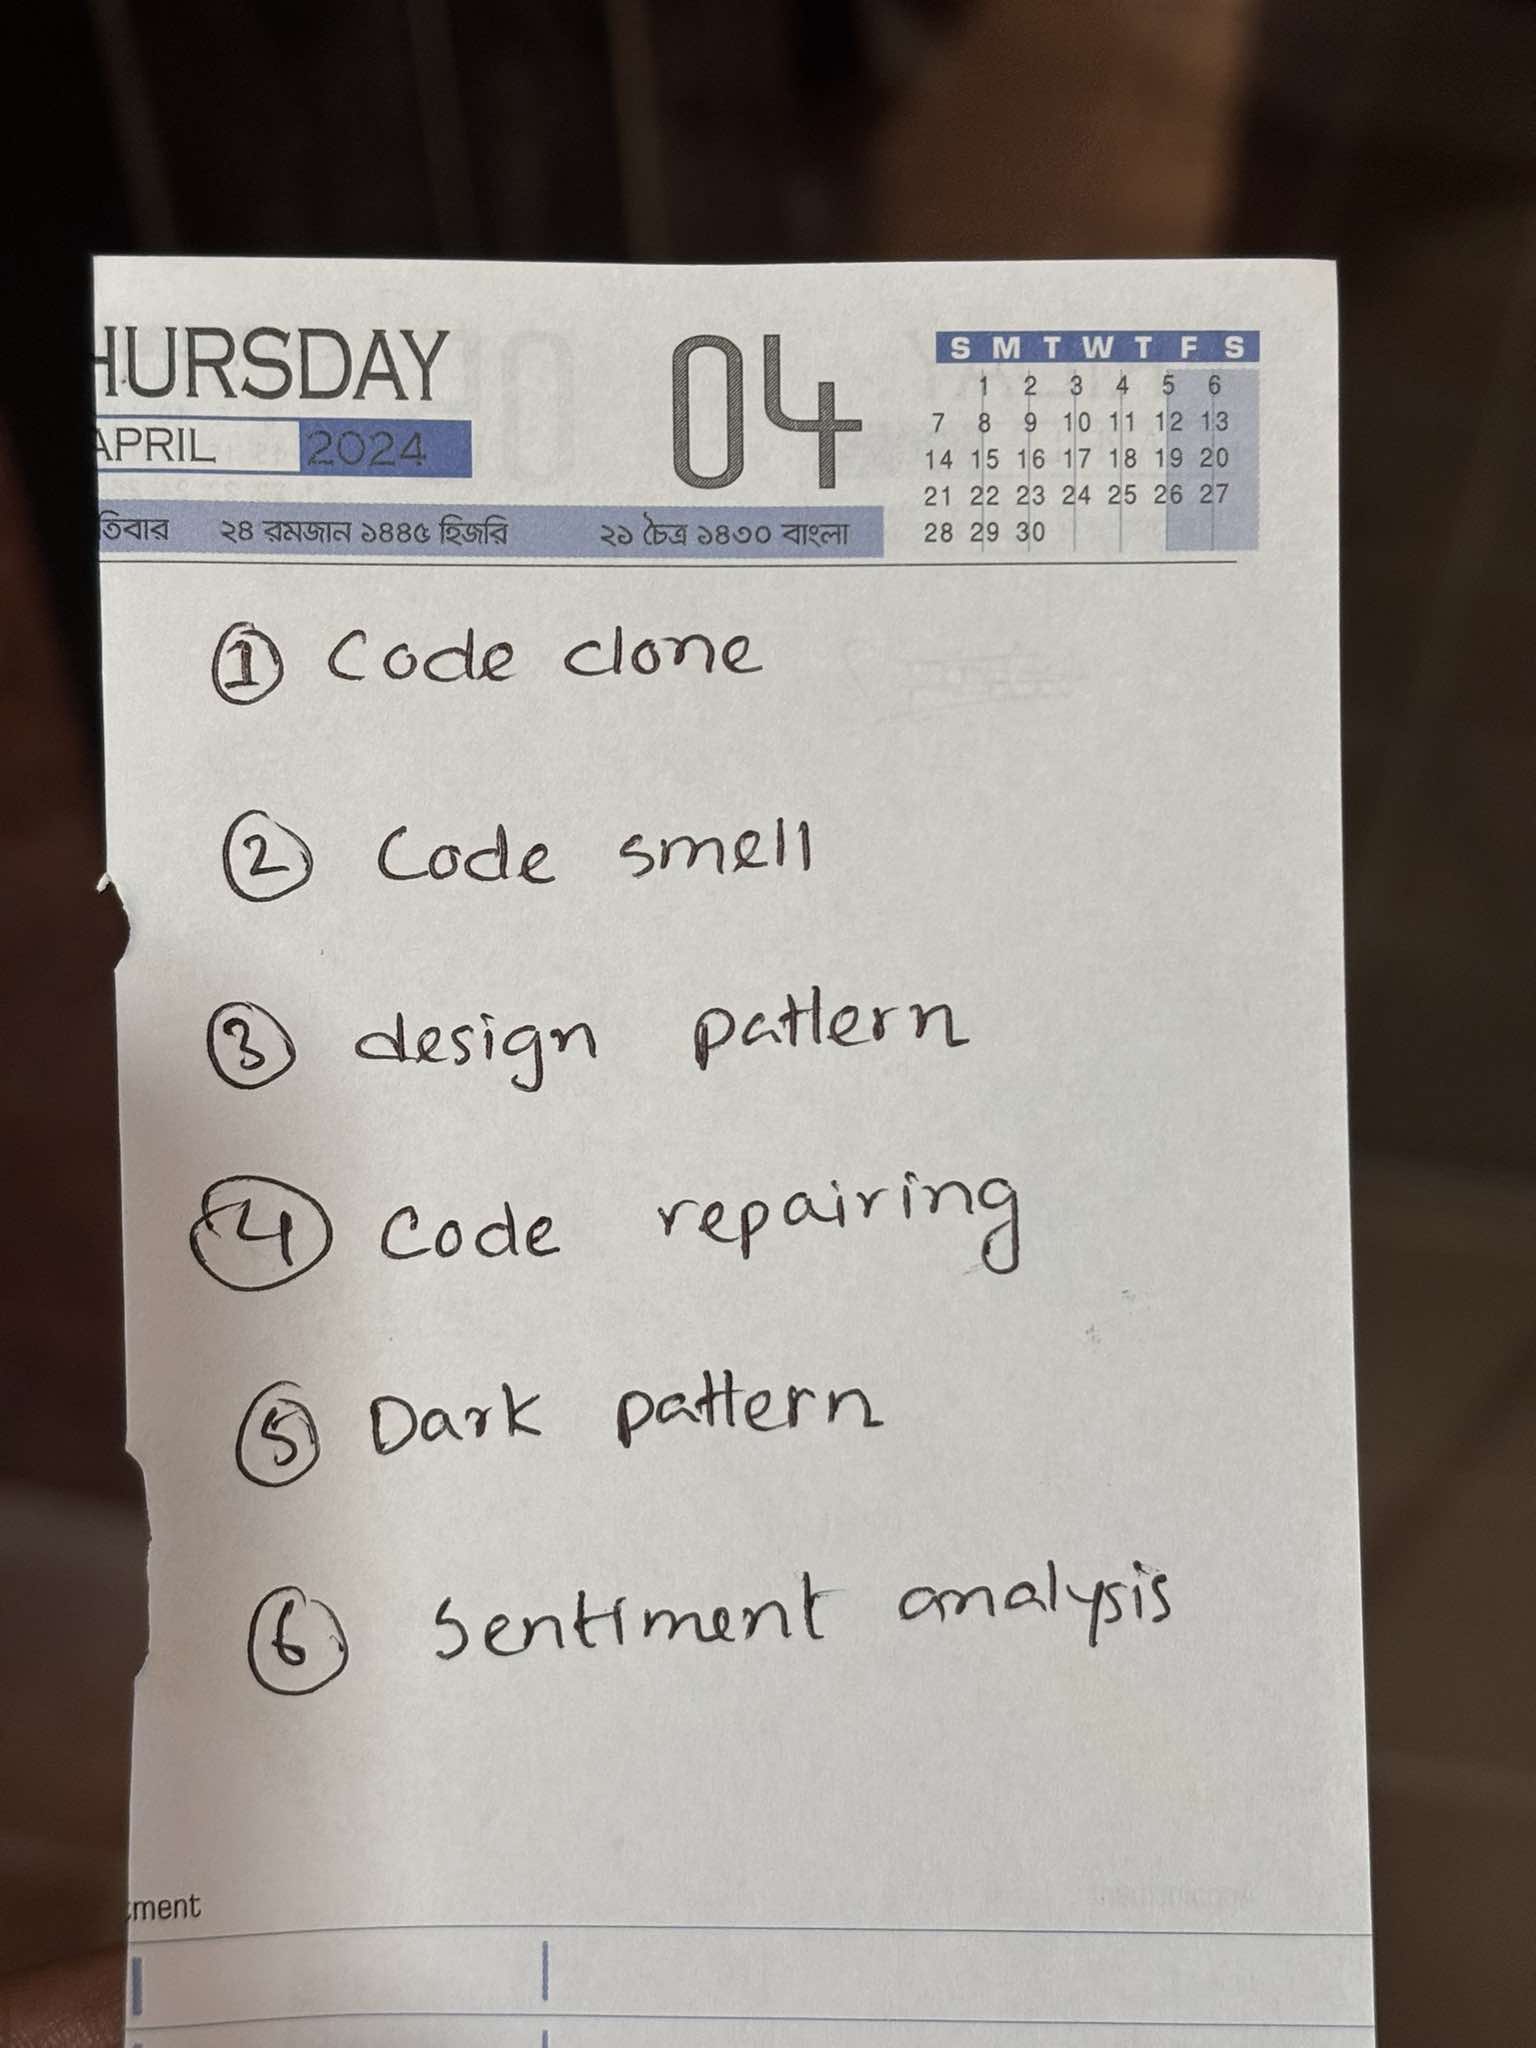 HURSDAY
04
APRIL 2024
তিবার ২৪ রমজান ১৪৪৫ হিজরি ২১ চৈত্র ১৪৩০ বাংলা
S M T W T F S
1 2 3 4 5 6
7 8 9 10 11 12 13
14 15 16 17 18 19 20
21 22 23 24 25 26 27
28 29 30
1 Code clone
2 Code smell
3 design pattern
4 Code repairing
5 Dark pattern
6 Sentiment analysis
ment